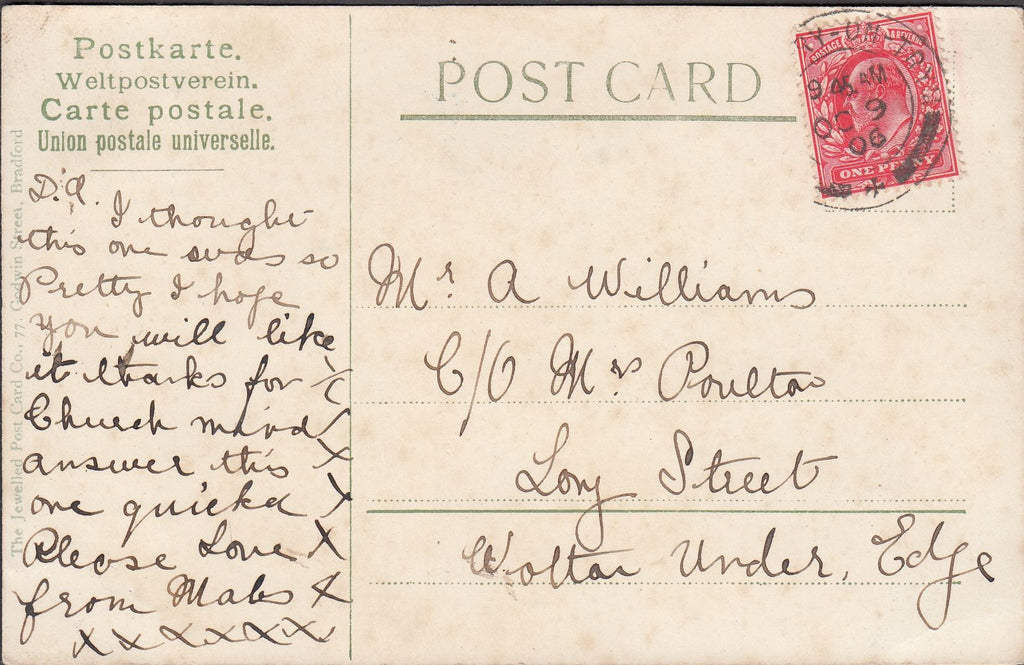 Postkarte.
Weltpostverein.
Carte postale.
Union postale universelle.
The Jewelled Post Card Co., 77, Godwin Street, Bradford
D.A. I thought
this one was so
Pretty I hope
you will like
it thanks for X
Church mind X
answer this X
one quicker X
Please Love X
from Mabs X
X X X X X X
POST CARD
POSTAGE & REVENUE
ONE PENNY
9 45 AM
OC 9
06
Mr. A Williams
C/O Mrs Poulton
Long Street
Wolton Under, Edge